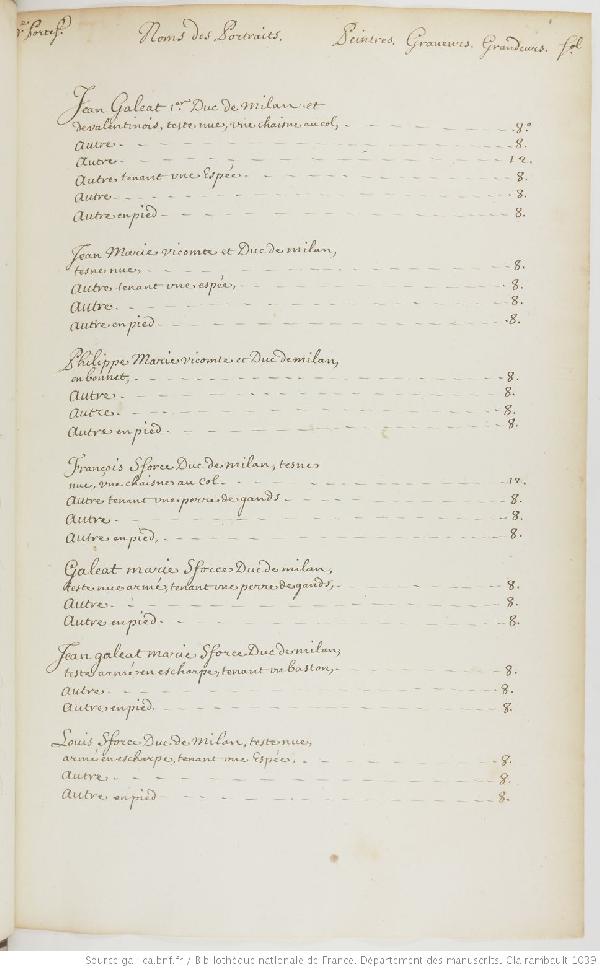 Portef.
Noms des Portraits. Peintres. Graveurs. Grandeurs. fol
Jean Galeat 1er Duc de Milan et
de valentinois, teste nue, vne chaisne au col, 8.o
Autre 8.
Autre 12.
Autre tenant vne Espée 8.
Autre 8.
Autre en pied 8.
Jean Marie vicomte et Duc de milan,
teste nue, 8.
Autre tenant vne espée, 8.
Autre. 8.
Autre en pied 8.
Philippe Marie vicomte et Duc de milan,
en bonnet, 8.
Autre 8.
Autre. 8.
Autre en pied. 8.
François Sforce Duc de milan, teste
nue, vne chaisne au col 12.
Autre tenant vne perre de gands 8.
Autre 8.
Autre en pied, 8.
Galeat marie Sforce Duc de milan,
teste nue armé, tenant vne perre de gands, 8.
Autre. 8.
Autre en pied. 8.
Jean galeat marie Sforce Duc de milan,
teste armé en escharpe, tenant vn baston, 8.
Autre 8.
Autre en pied. 8.
Louis Sforce Duc de Milan, teste nue,
armé en escharpe, tenant vne Espée. 8.
Autre 8.
Autre en pied 8.
Source gallica.bnf.fr / Bibliothèque nationale de France. Département des manuscrits. Clairambault 1039